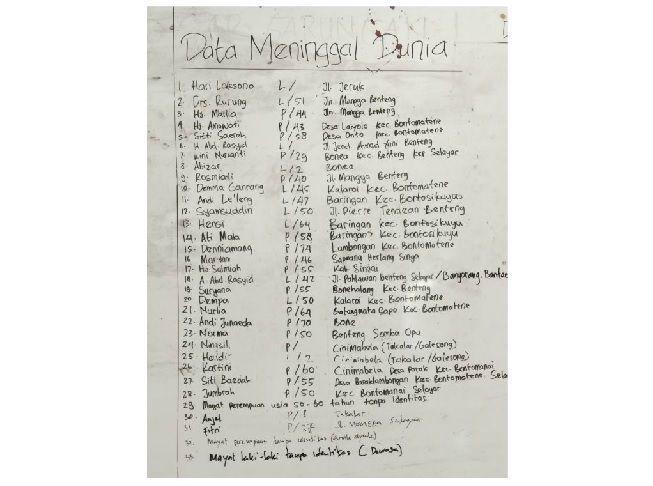 Data Meninggal Dunia
1. Hari Laksono L/ Jl. Jeruk
2. Drs. Rurung L/51 Jln. Mangga Benteng
3. Hj. Marlia P/44 Jln. Mangga Benteng
4. Hj. Arnawati P/43 Desa Kec. Bontomatene
5. Sitti Saerah P/58 Desa Onto Kec. Bontomatene
6. H. Abd. Rasyid L/ Jl. Jend. Achmad Yani Benteng
7. Nurianti P/29 Bonea Kec. Benteng Kab. Selayar
8. Abizar L/2 Bonea
9. Rosmiati P/40 Jl. Mangga Benteng
10. Demma Gannang L/45 Kalaroi Kec. Bontomatene
11. Andi Le'leng L/47 Baringan Kec. Bontosikuyu
12. Syamsuddin L/50 Jl. Pierre Tendean Benteng
13. Hensi L/64 Baringan Kec. Bontosikuyu
14. Ati Mala P/58 Baringan Kec. Bontosikuyu
15. Denniamang P/74 Lambongan Kec. Bontomatene
16. P/46 Herlang Sinjai
17. Hj. Salmiah P/55 Kab. Sinjai
18. A. Abd. Rasyid L/42 Jl. Pahlawan Benteng Selayar/
19. Suryana P/55 Bonehalang Kec. Benteng
20. Dempa L/50 Kalaroi Kec. Bontomatene
21. Nurlia P/64 Batangmata Sapo Kec. Bontomatene
22. Andi Junaeda P/70 Bone
23. Norma P/50 Benteng Somba Opu
24. P/ Cinimabela (Takalar/Galesong)
25. / 7 Cinimabela (Takalar/Galesong)
26. Kartini P/60 Cinimabela Desa Kec. Bontomanai
27. Siti Badah P/55 Desa Kec. Bontomatene.
28. Jumbrah P/50 Kec. Bontomanai Selayar
29. Mayat perempuan usia 50-60 tahun tanpa identitas
30. P/ Takalar
31. Fitri P/
32. Mayat perempuan tanpa identitas
33. Mayat laki-laki tanpa identitas (Dewasa)